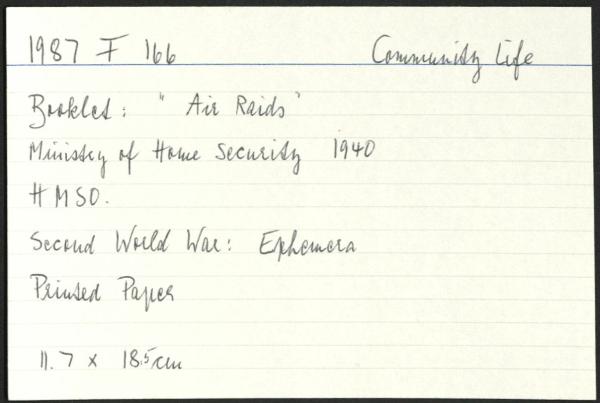 1987 F 166 Community Life
Booklet: "Air Raids"
Ministry of Home Security 1940
HMSO.
Second World War: Ephemera
Printed Paper
11.7 x 18.5cm